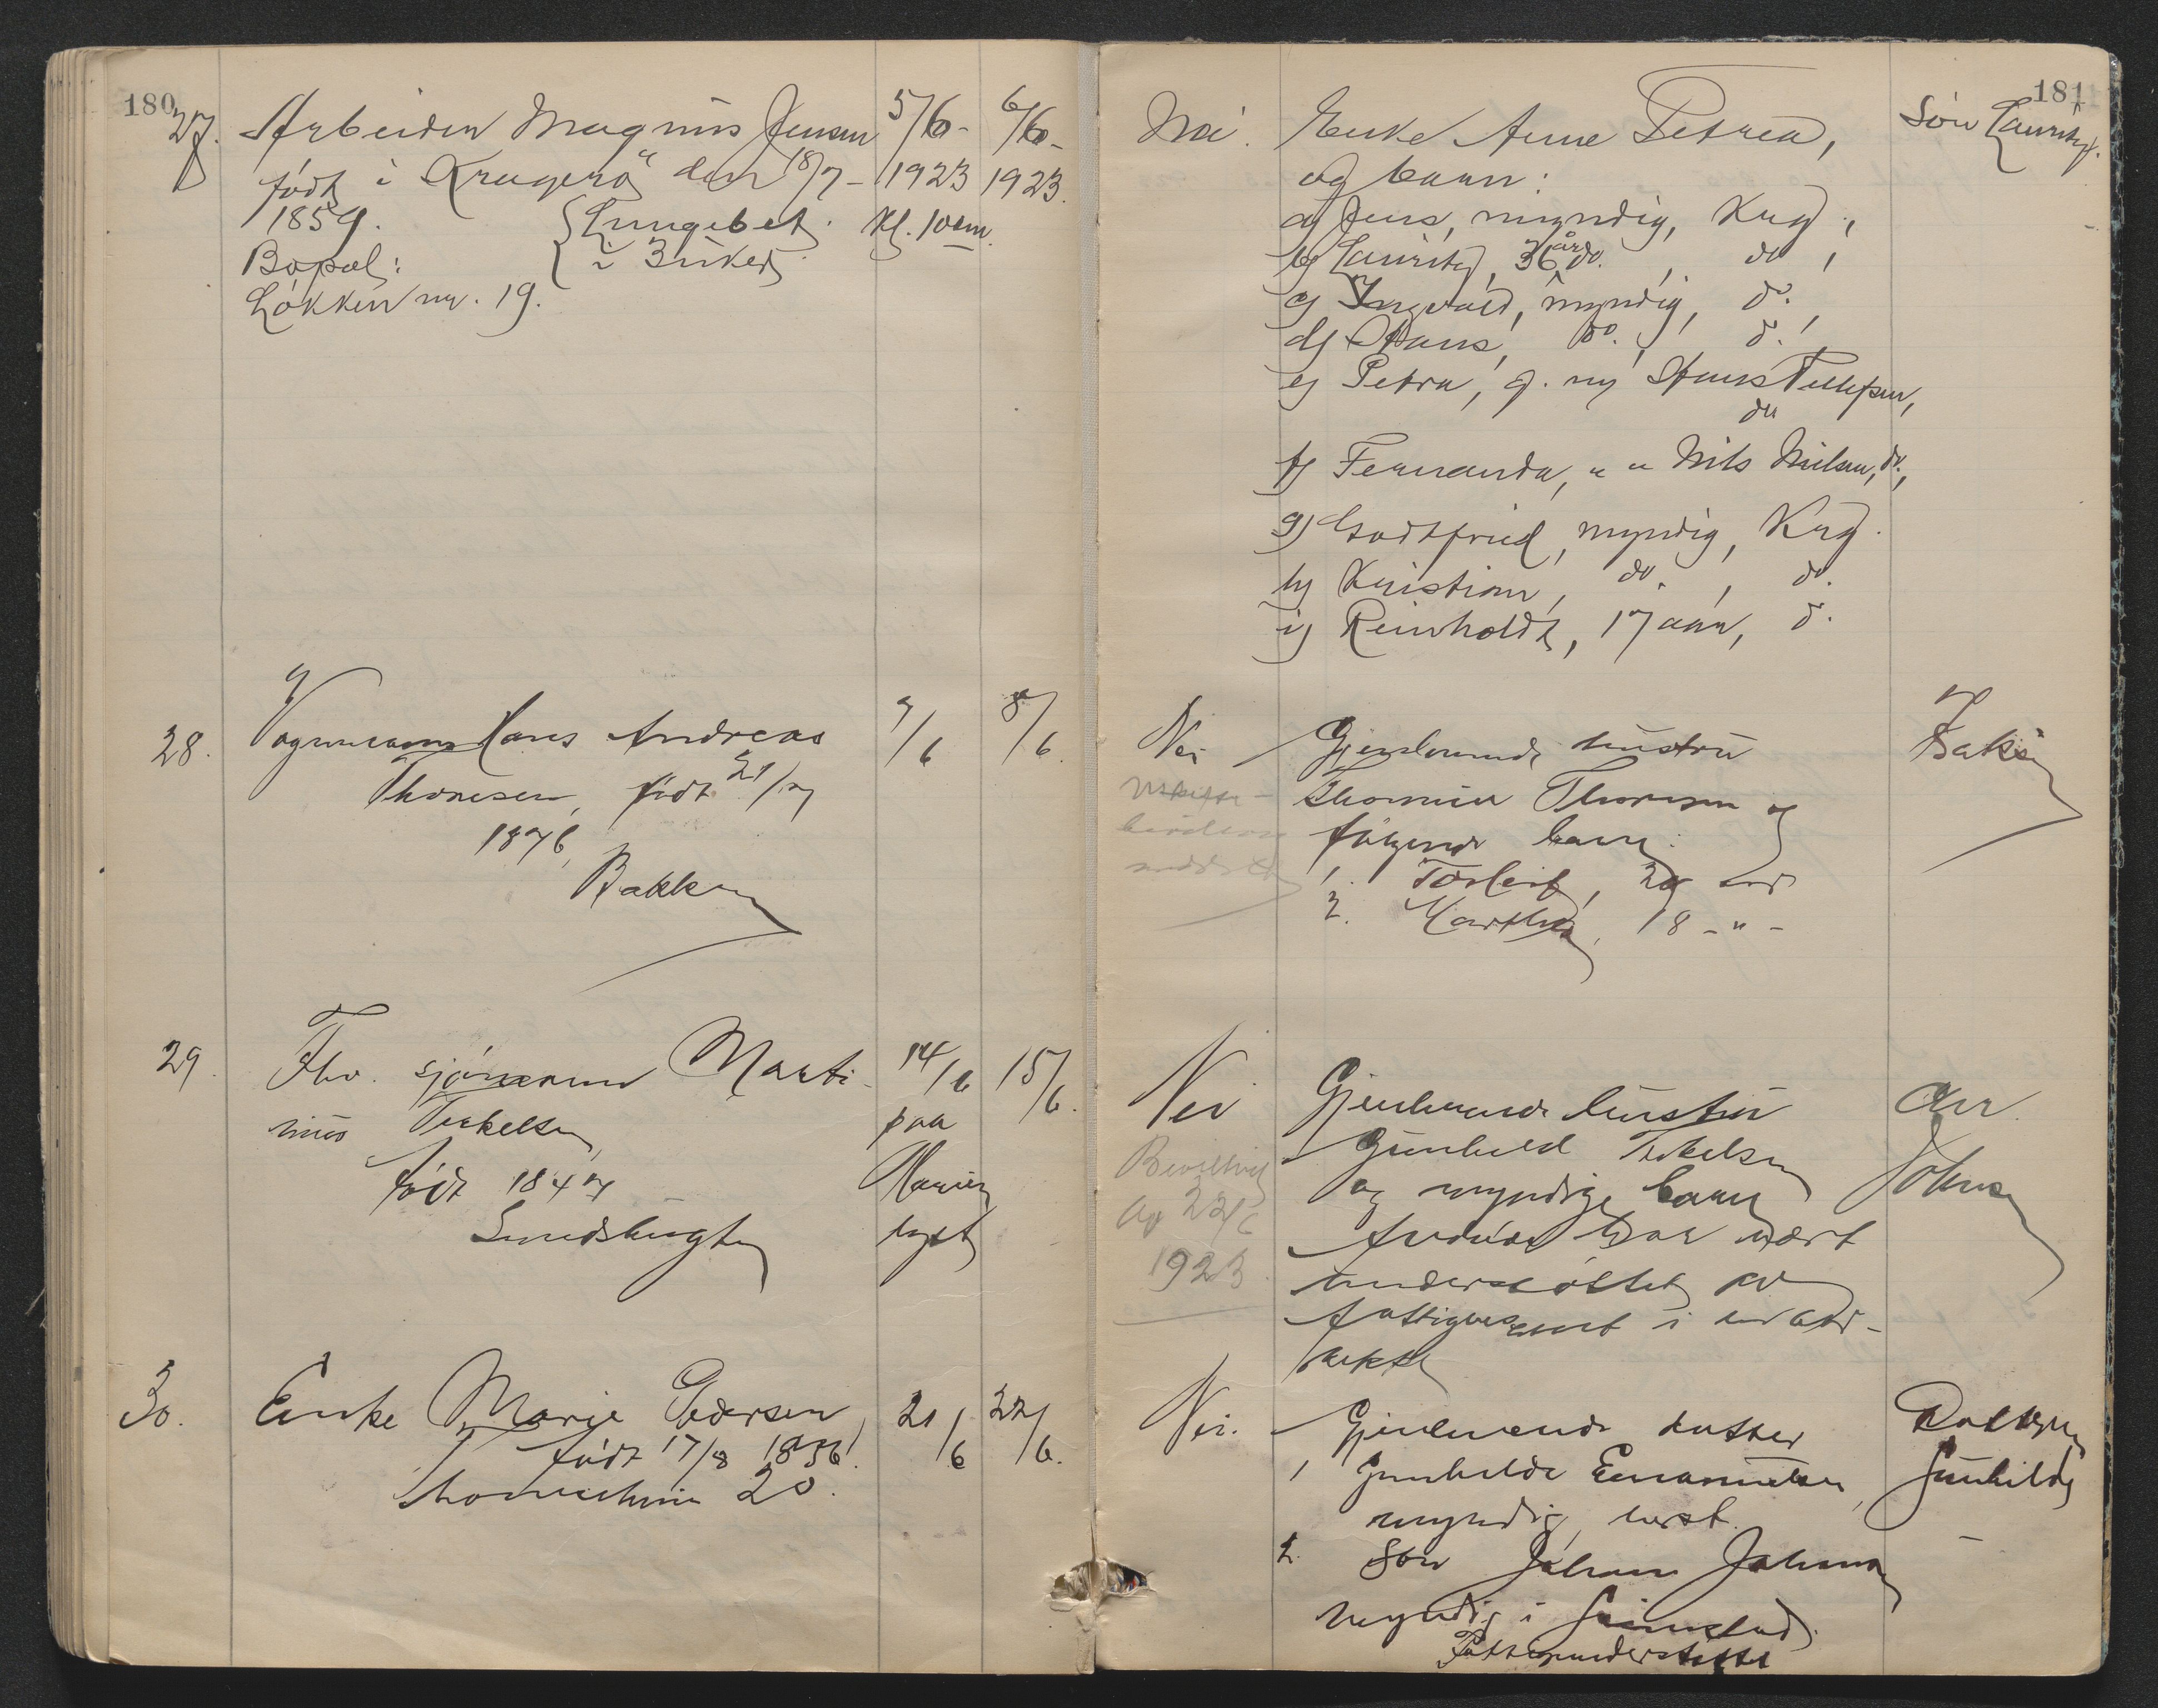 180
27. Arbeider Magnus Jensen 5/6- 6/6-
født i Kragerø den 18/7- 1923 1923.
1859. Lungebet. Kl. 10 em.
Bopæl: i 3 uker
Løkken nr. 19.
28. Vognmann Hans Andreas 7/6 8/6.
Thoresen, født 21/7
1876,
Bakken
29. Fhv. sjømann Marti- 14/6 15/6.
nius Terkelsen paa
født 1847 Marien
Sundsbugten lyst
30. Enke Marie Pedersen, 21/6 22/6.
født 17/8 1856.
20.
181
Nei. Enke Anne Petrea, Søn Lauritz.
og barn:
a) Jens, myndig, Krag.,
b) Lauritz, 36 år do., do,
c) Ingvald, myndig, do.,
d) Hans, do., do.,
e) Petra, g. m/ Hans Tellefsen,
do
f) Fernanda, " " Nils Nielsen, do.,
g) Godtfried, myndig, Krag.
h) Kristian, do., do.
i) Reinholdt, 17 aar, do.
Nei Gjenlevende hustru
Thoresen og
følgende barn:
1. Torleif, 20 aar
2. Martha, 18 - " -
Nei Gjenlevende hustru
Bevilling Gunhild Terkelsen Johnsen
av 22/6 og myndige barn
1923. Avdøde har vært
understøttet av
fattigvesenet i en aar-
rekke
Nei. Gjenlevende datter Datteren
1 Gunhilde Emanuelsen, Gunhilde
myndig, herst.
2. Søn Johan Johnsen
myndig i Grimstad.
Fattigunderstøttet